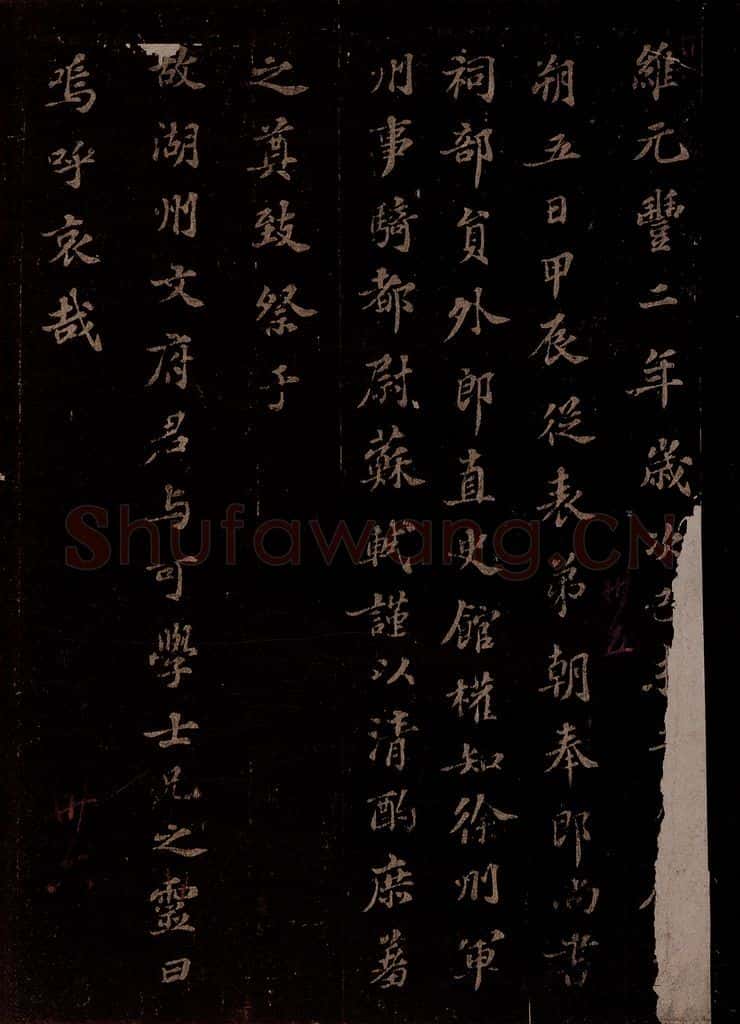 維元豐二年歲次己未
朔五日甲辰從表弟朝奉郎尚書
祠部員外郎直史館權知徐州軍
州事騎都尉蘇軾謹以清酌庶羞
之奠致祭于
故湖州文府君与可學士兄之靈曰
嗚呼哀哉
Shufawang.CN
卅五